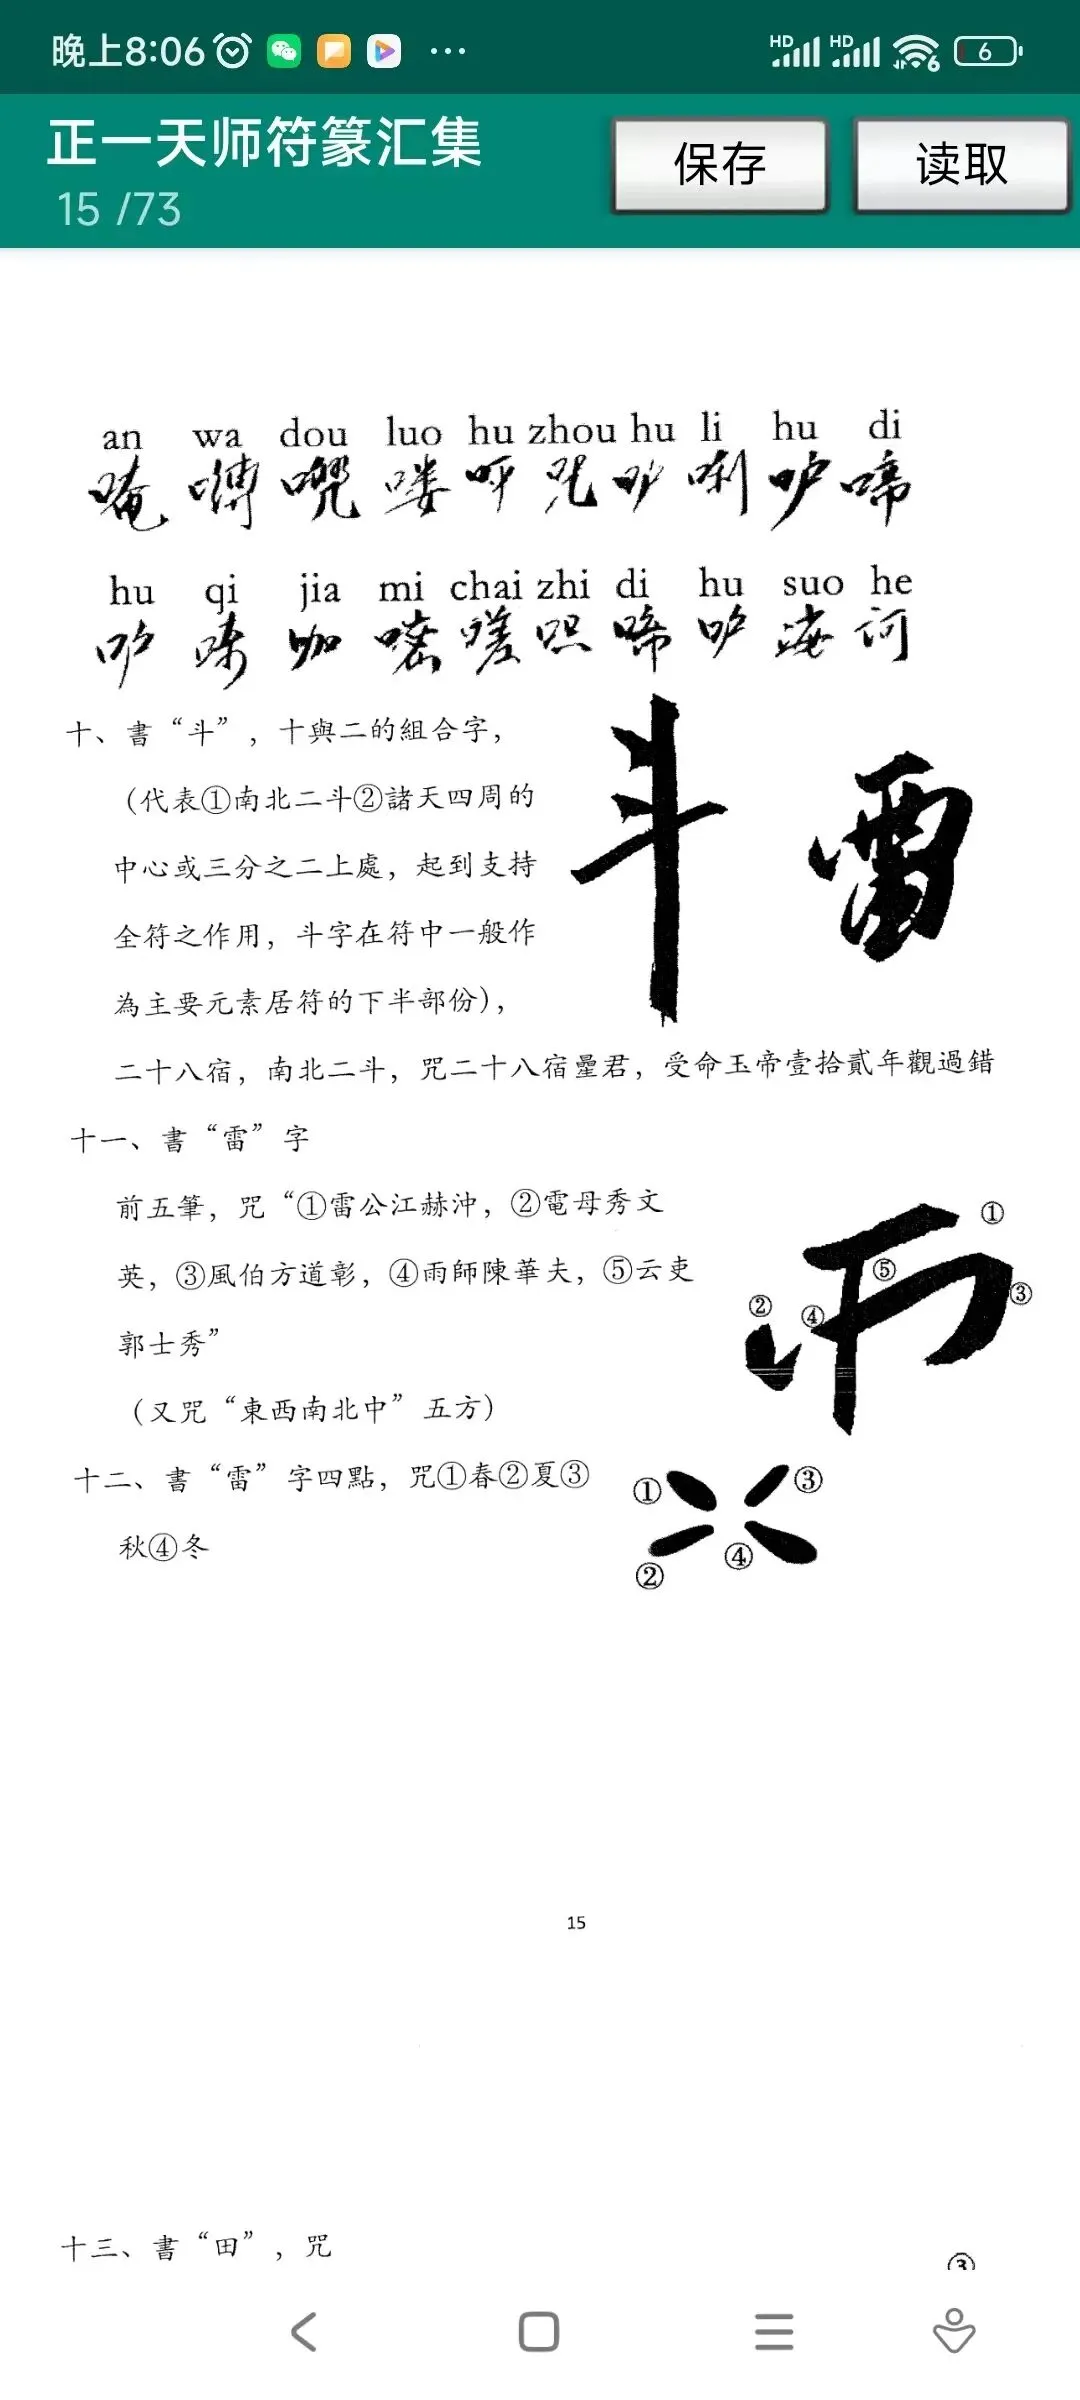 晚上8:06
HD HD 6 6
正一天师符篆汇集
15 /73
保存 读取
an wa dou luo hu zhou hu li hu di
唵 嚩 吺 喽 呼 咒 𠯳 唎 嚧 啼
hu qi jia mi chai zhi di hu suo he
嚧 咖 嘧 嗟 啼 嚧 娑 诃
十、書“斗”，十與二的組合字，
（代表①南北二斗②諸天四周的
中心或三分之二上處，起到支持
全符之作用，斗字在符中一般作
為主要元素居符的下半部份），
二十八宿，南北二斗，咒二十八宿星君，受命玉帝壹拾貳年觀過錯
斗 雷
十一、書“雷”字
前五筆，咒“①雷公江赫沖，②電母秀文
英，③風伯方道彰，④雨師陳華夫，⑤云吏
郭士秀”
（又咒“東西南北中”五方）
① ② ③ ④ ⑤
十二、書“雷”字四點，咒①春②夏③
秋④冬
① ③
② ④
15
十三、書“田”，咒
③